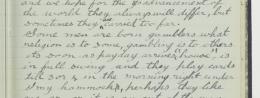 and we hope for the advancement of
the world they always will differ, but
sometimes they are carried too far.
Some men are born gamblers what
religion is to some, gambling is to others
as soon as payday arrives, house, is
in full swing and they play cards
till 3 or 4 in the morning right under
my hammock, perhaps they like